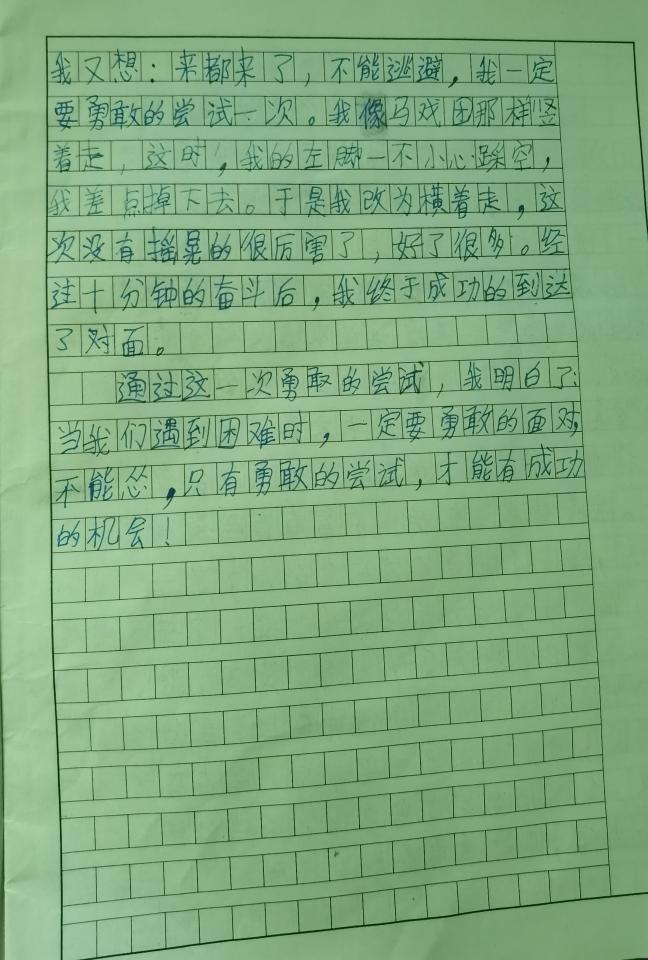 我又想：来都来了，不能逃避，我一定
要勇敢的尝试一次。我像马戏团那样竖
着走，这时，我的左脚一不小心踩空，
我差点掉下去。于是我改为横着走，这
次没有摇晃的很厉害了，好了很多。经
过十分钟的奋斗后，我终于成功的到达
了对面。
通过这一次勇敢的尝试，我明白了：
当我们遇到困难时，一定要勇敢的面对，
不能怂，只有勇敢的尝试，才能有成功
的机会！